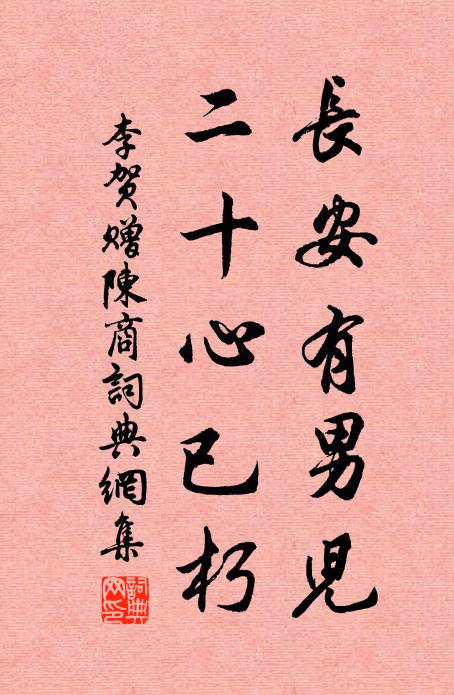 長安有男児
二十心已朽
李贺贈陳商詞典網集
詞典
网印